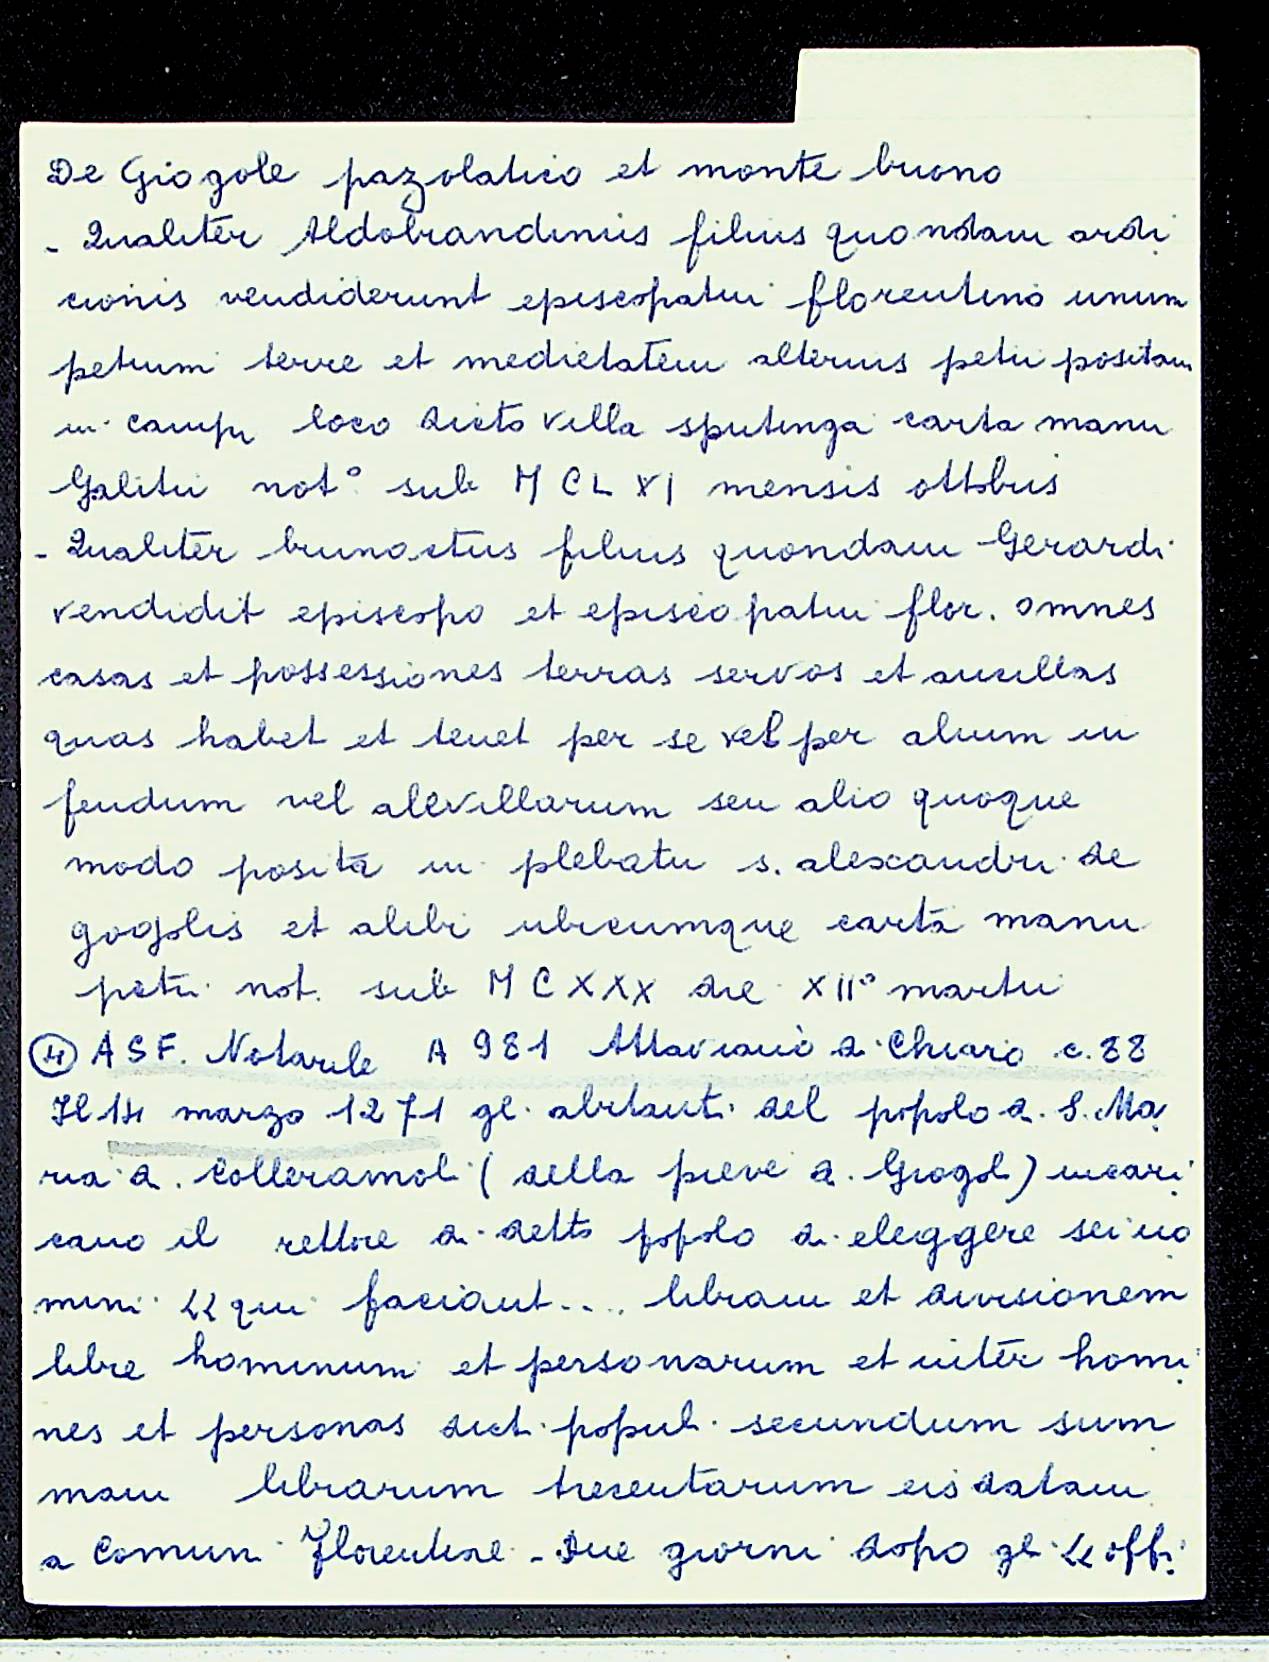 De Giogole pazolatico et monte buono
- Qualiter Aldobrandinus filius quondam ardi
cionis vendiderunt episcopatui florentino unum
petium terre et medietatem alterius petii positam
in campi loco dicto villa sputinga carta manu
Galitii not° sub MCLXI mensis ottobris
- Qualiter brunactus filius quondam Gerardi
vendidit episcopo et episcopatui flor. omnes
casas et possessiones terras servos et ancillas
quas habet et tenet per se vel per alium in
feudum vel alevillarum seu alio quoque
modo posita in plebatu s. alexandri de
gogolis et alibi ubicumque carta manu
petri not. sub MCXXX die XII° martii
④ ASF. Notarile A 981 Attaviano di Chiaro c. 88
Il 14 marzo 1271 gli abitanti del popolo di S. Ma
ria di Colleramoli (della pieve di Giogoli) incari
cano il rettore di detto popolo di eleggere sei uo
mini << qui faciant.... libram et divisionem
libre hominum et personarum et inter homi
nes et personas dicti populi secundum sum
mam librarum trecentarum eis datam
a Comuni Florentine - Due giorni dopo gli << offi